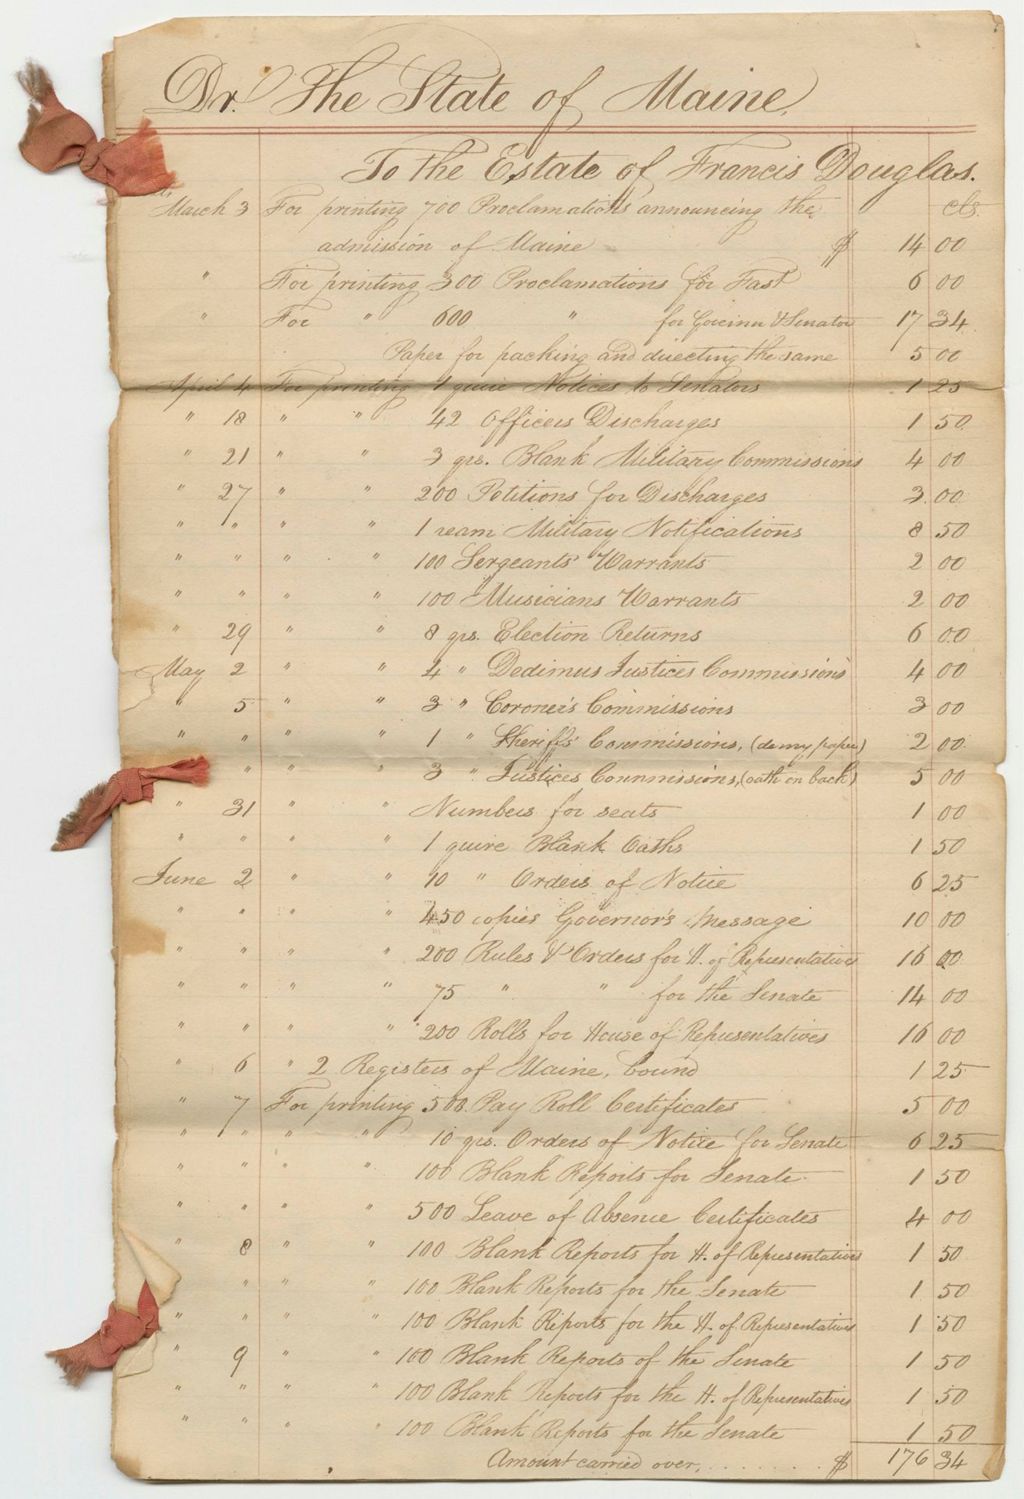 Dr. The State of Maine,
To the Estate of Francis Douglas.
cts.
March 3 For printing 700 Proclamations announcing the
admission of Maine $ 14 00
" For printing 300 Proclamations for Fast 6 00
" For " 600 " for & Senator 17 34
Paper for packing and directing the same 5 00
April 4 For printing 1 quire Notices to Senators 1 25
" 18 " " 42 Officers Discharges 1 50
" 21 " " 3 qrs. Blank Military Commissions 4 00
" 27 " " 200 Petitions for Discharges 3 00
" " " " 1 ream Military Notifications 8 50
" " " " 100 Sergeants' Warrants 2 00
" " " " 100 Musicians Warrants 2 00
" 29 " " 8 qrs. Election Returns 6 00
May 2 " " 4 " Dedimus Justices Commissions 4 00
" 5 " " 3 " Coroner's Commissions 3 00
" " " " 1 " Sheriffs' Commissions, (demy paper) 2 00
" " " " 3 " Justices Commissions, (oath on back) 5 00
" 31 " " Numbers for seats 1 00
" " " " 1 quire Blank Oaths 1 50
June 2 " " 10 " Orders of Notice 6 25
" " " " 450 copies Governor's Message 10 00
" " " " 200 Rules & Orders for H. of Representatives 16 00
" " " " 75 " " for the Senate 14 00
" " " " 200 Rolls for House of Representatives 16 00
" 6 " 2 Registers of Maine, bound 1 25
" 7 For printing 500 Pay Roll Certificates 5 00
" " " " 10 qrs. Orders of Notice for Senate 6 25
" " " " 100 Blank Reports for Senate 1 50
" " " " 500 Leave of Absence Certificates 4 00
" 8 " " 100 Blank Reports for H. of Representatives 1 50
" " " 100 Blank Reports for the Senate 1 50
" " " " 100 Blank Reports for the H. of Representatives 1 50
" 9 " " 100 Blank Reports of the Senate 1 50
" " " " 100 Blank Reports for the H. of Representatives 1 50
" " " " 100 Blank Reports for the Senate 1 50
Amount carried over, . . . . . . . . $ 176 34